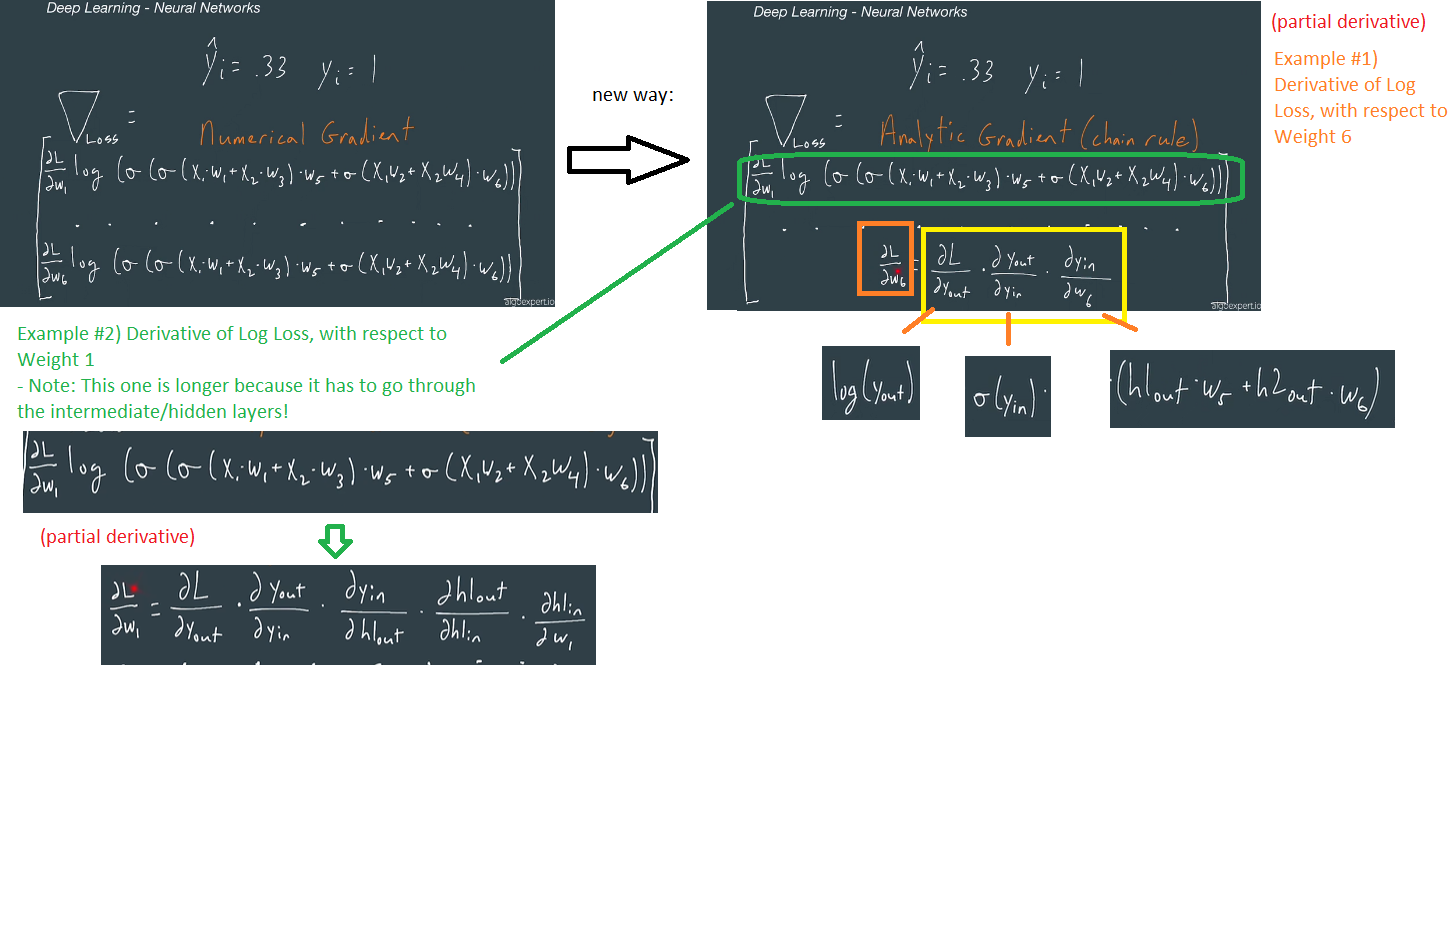 Deep Learning - Neural Networks
ŷᵢ = .33 yᵢ = 1
▽Loss =
Numerical Gradient
∂L/∂w₁ log (σ (σ (X₁·w₁ + X₂·w₃)·w₅ + σ (X₁w₂ + X₂w₄)·w₆))
. . . . . . . . .
∂L/∂w₆ log (σ (σ (X₁·w₁ + X₂·w₃)·w₅ + σ (X₁w₂ + X₂w₄)·w₆))
algoexpert.io
new way:
Deep Learning - Neural Networks
ŷᵢ = .33 yᵢ = 1
▽Loss =
Analytic Gradient (chain rule)
∂L/∂w₁ log (σ (σ (X₁·w₁ + X₂·w₃)·w₅ + σ (X₁w₂ + X₂w₄)·w₆))
∂L/∂w₆ = ∂L/∂yout · ∂yout/∂yin · ∂yin/∂w₆
algoexpert.io
(partial derivative)
Example #1)
Derivative of Log
Loss, with respect to
Weight 6
log(yout)
σ(yin)·
·(h1out·w₅ + h2out·w₆)
Example #2) Derivative of Log Loss, with respect to
Weight 1
- Note: This one is longer because it has to go through
the intermediate/hidden layers!
∂L/∂w₁ log (σ (σ (X₁·w₁ + X₂·w₃)·w₅ + σ (X₁w₂ + X₂w₄)·w₆)))
(partial derivative)
∂L/∂w₁ = ∂L/∂yout · ∂yout/∂yin · ∂yin/∂h1out · ∂h1out/∂h1in · ∂h1in/∂w₁